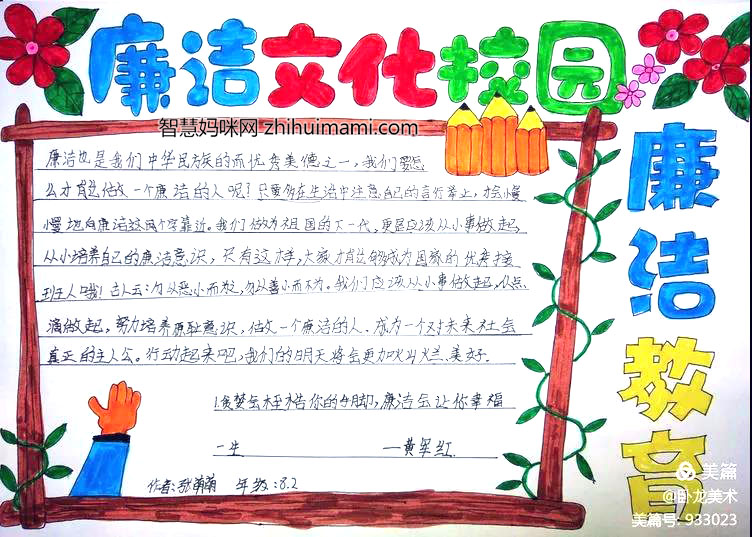 廉洁文化校园
智慧妈咪网 zhihuimami.com
廉洁也是我们中华民族的而优秀美德之一,我们要怎
么才有做一个廉洁的人呢?只要你在生活中注意自己的言行举止,才会慢
慢地向廉洁这两个字靠近。我们做为祖国的下一代,更应应该从小事做起,
从小培养自己的廉洁意识,只有这样,大家才有能够成为国家的优秀接
班人哦!古人云:勿以恶小而为之,勿以善小而不为。我们应该从小事做起,从点
滴做起,努力培养廉耻意识,做一个廉洁的人、成为一个对未来社会
真正的主人公。行动起来吧,我们的明天将会更加火火烂、美好.
1.贪婪会桎梏你的,廉洁会让你幸福
一生 —黄军红.
作者:张萌萌 年级:8.2
廉洁教育
美篇
@卧龙美术
美篇号: 933023